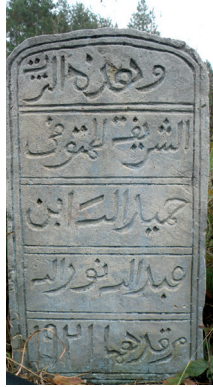 وهذه التربة
الشريفة المتوفى
حميارالله ابن
عبدالله نورالله
مرقدهما ١٩٢١